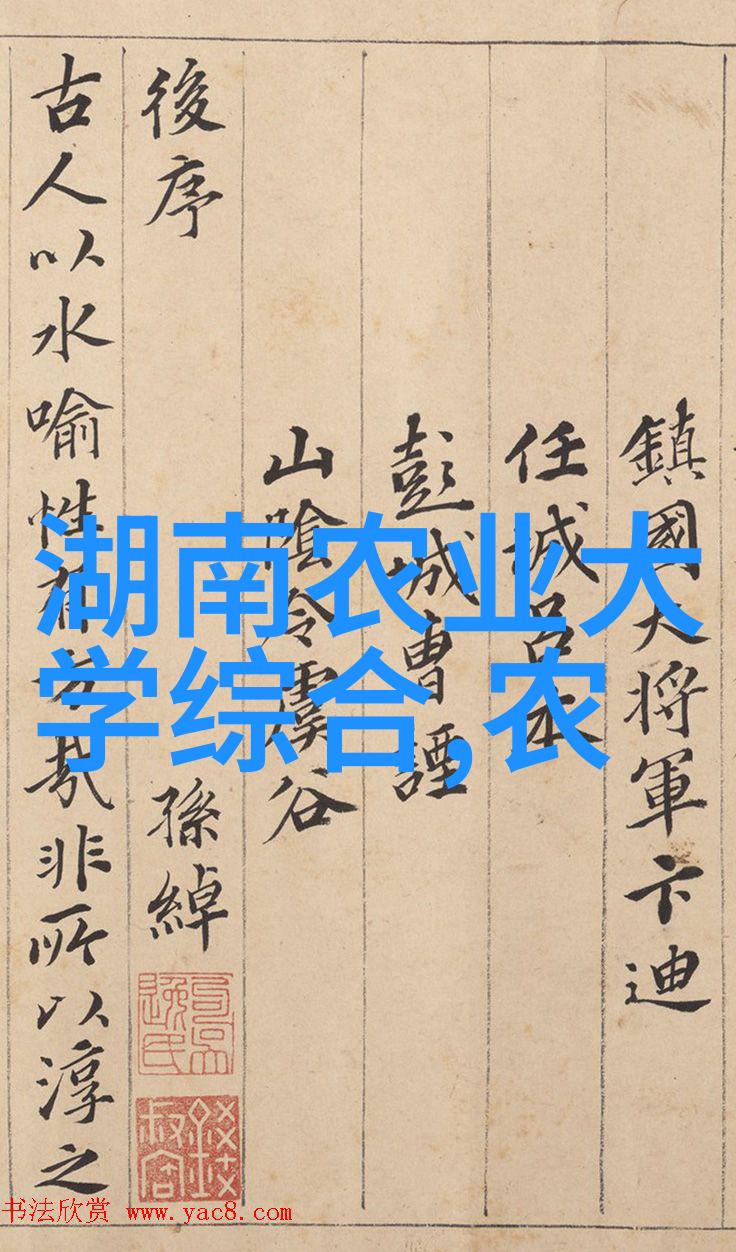 鎮國大將軍卞迪
任城呂本
彭城曹諲
山陰令虞谷
後序 孫綽
古人以水喻性有哉非所以淳之
湖南农业大
学综合,农
书法欣赏 www.yac8.com